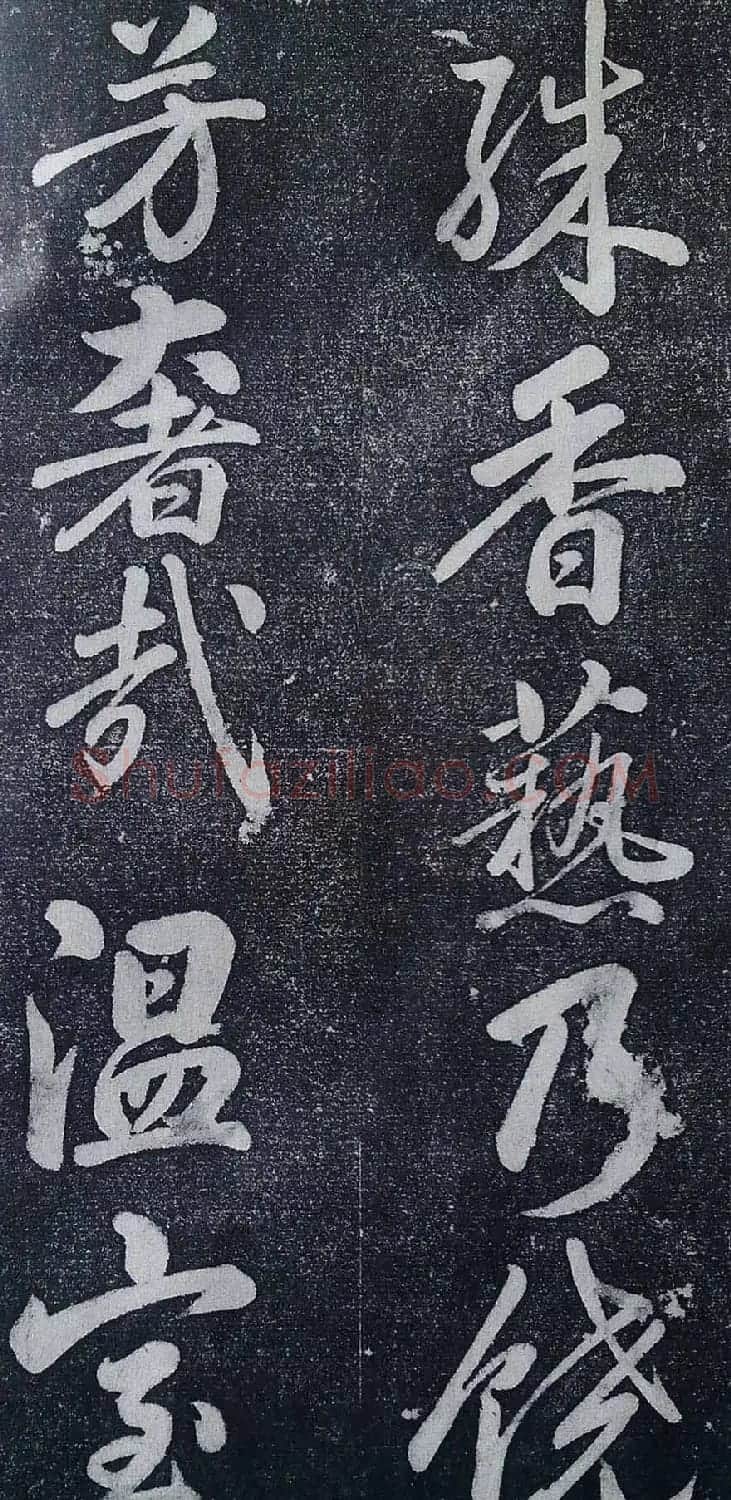 殊香藝乃饒
芳奢哉温室
Shufaziliao.com